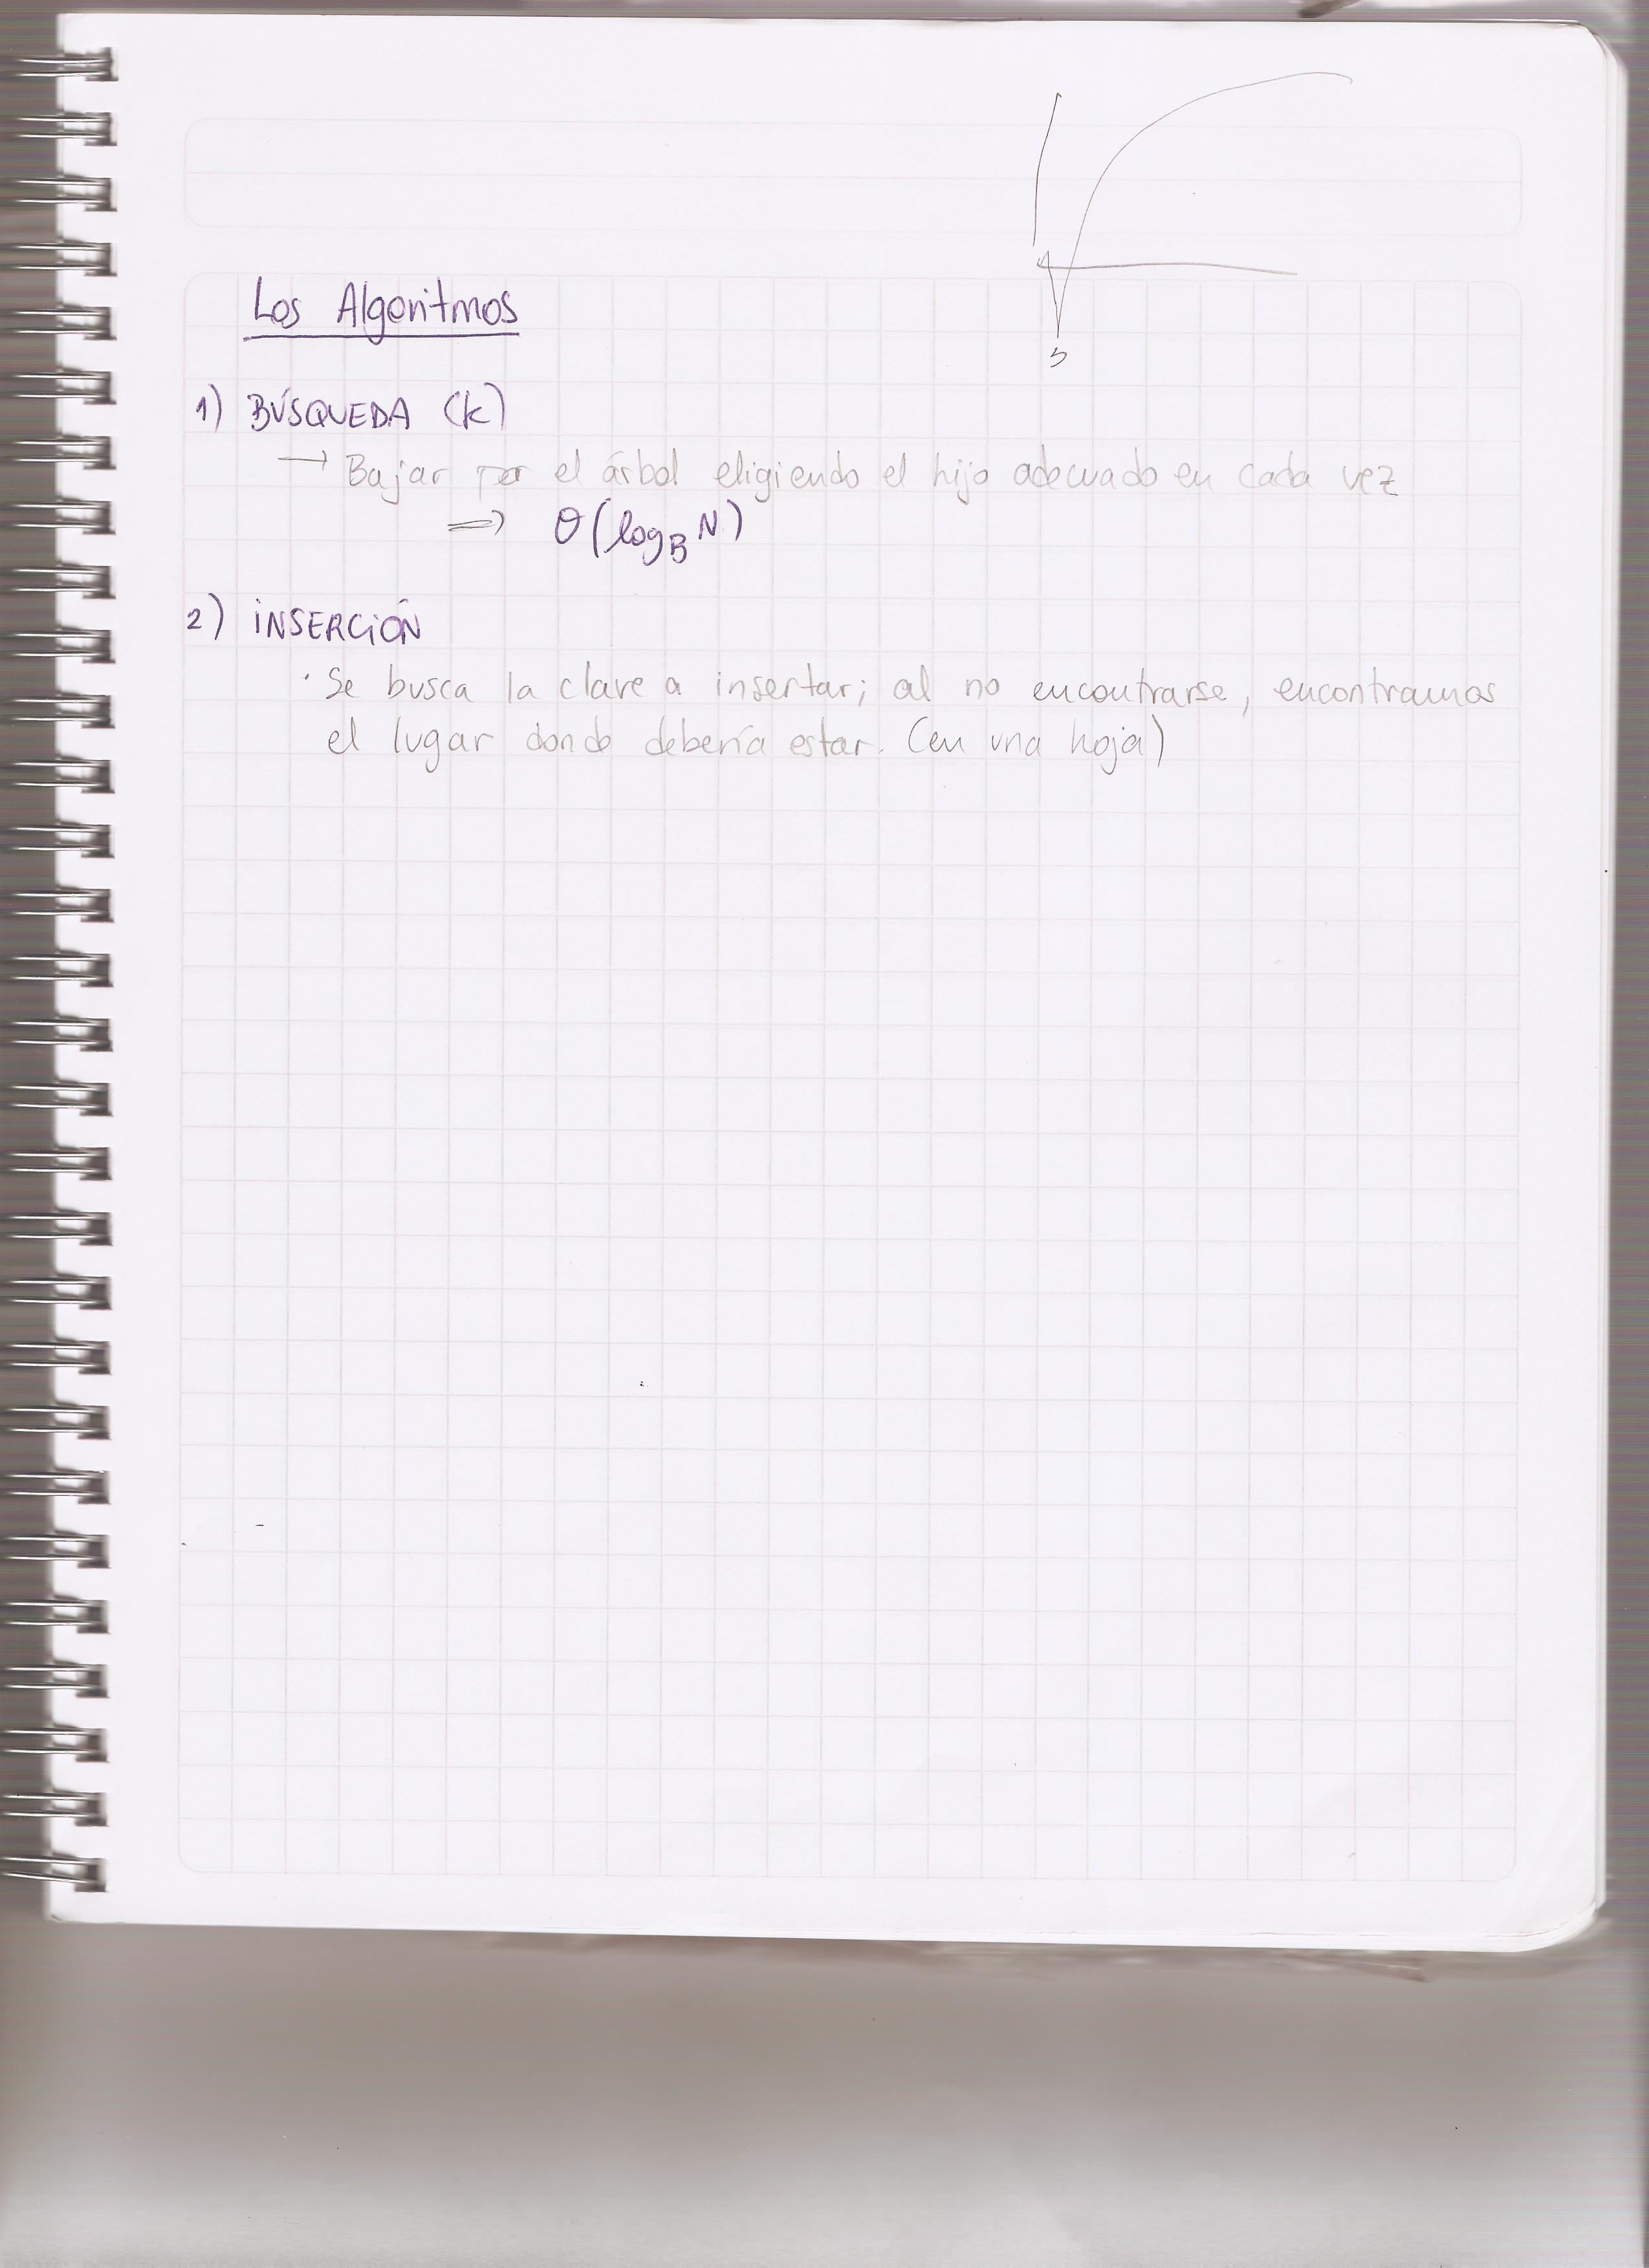 Los Algoritmos
1) BÚSQUEDA (k)
→ Bajar por el árbol eligiendo el hijo adecuado en cada vez
⇒ θ(log_B N)
2) INSERCIÓN
· Se busca la clave a insertar; al no encontrarse, encontramos
el lugar donde debería estar. (en una hoja)